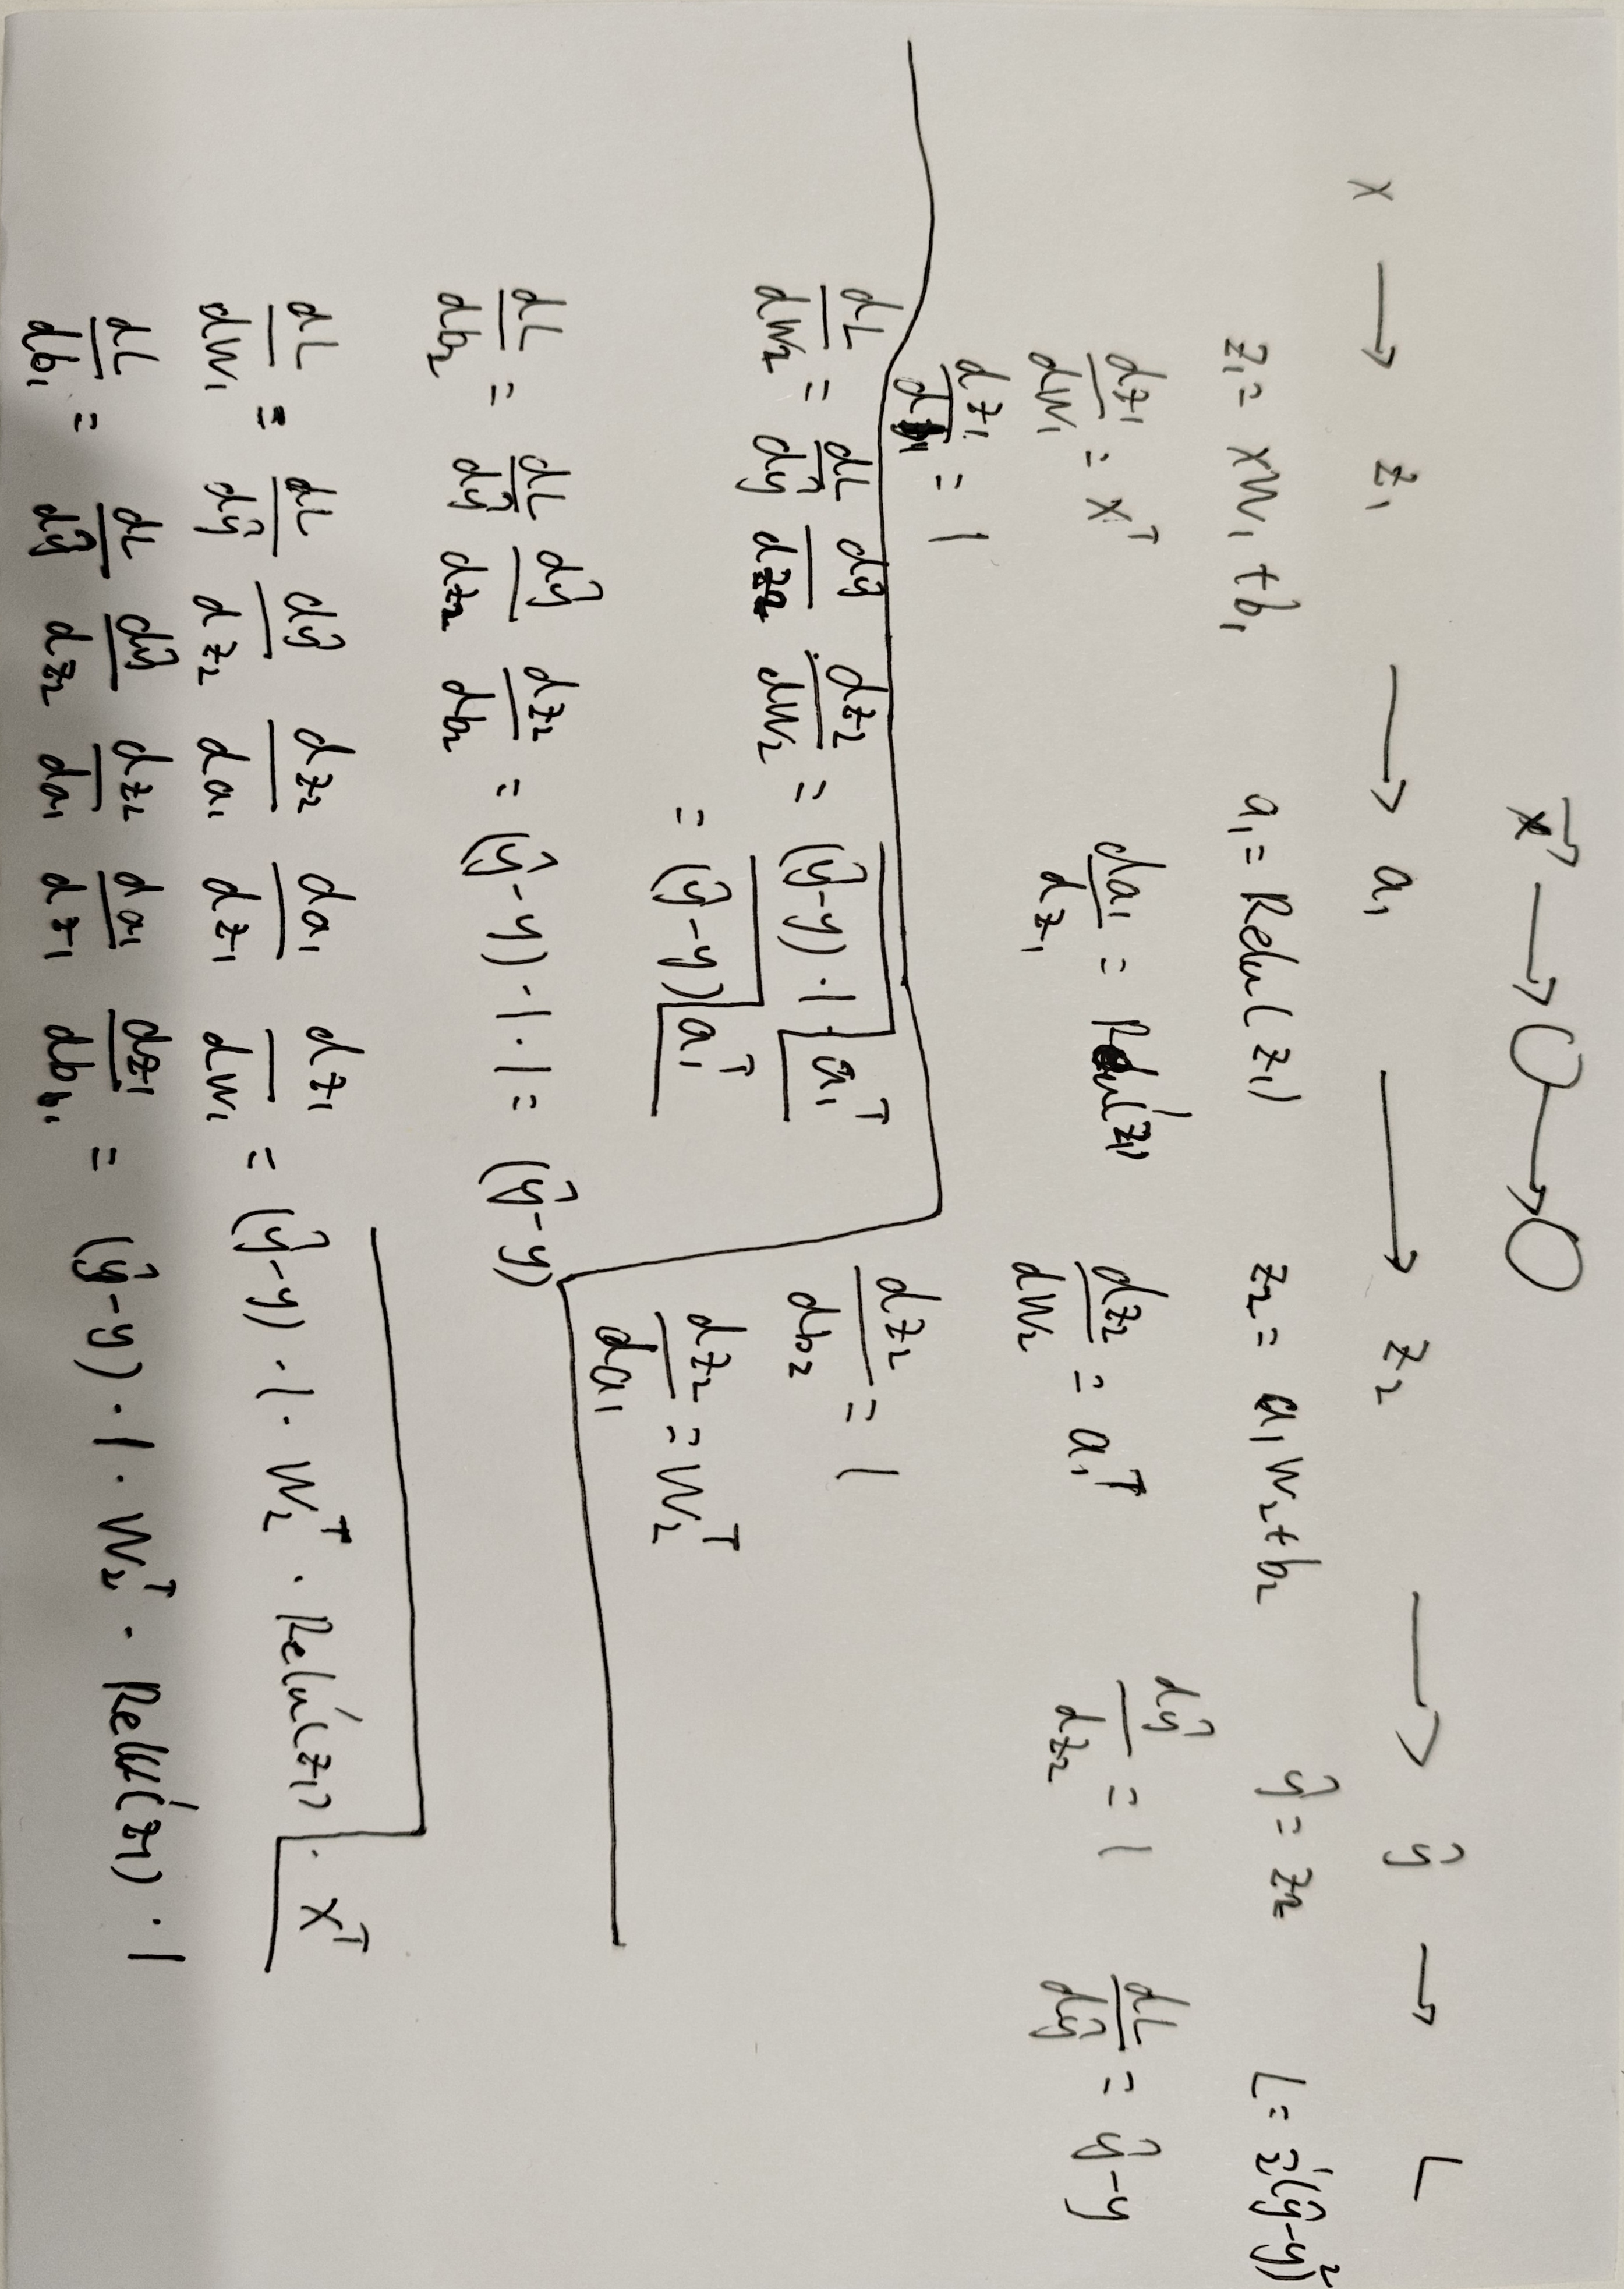 x⃗ → O → O
x → z₁ → a₁ → z₂ → ŷ → L
z₁ = xW₁ + b₁   a₁ = Relu(z₁)   z₂ = a₁W₂ + b₂   ŷ = z₂   L = ½(ŷ-y)²
dz₁/dW₁ = xᵀ   da₁/dz₁ = Relu'(z₁)   dz₂/dW₂ = a₁ᵀ   dŷ/dz₂ = 1   dL/dŷ = ŷ-y
dz₁/db₁ = 1   dz₂/db₂ = 1
dz₂/da₁ = W₂ᵀ
dL/dW₂ = dL/dŷ dŷ/dz₂ dz₂/dW₂ = (ŷ-y)·1·a₁ᵀ
= (ŷ-y)a₁ᵀ
dL/db₂ = dL/dŷ dŷ/dz₂ dz₂/db₂ = (ŷ-y)·1·1 = (ŷ-y)
dL/dW₁ = dL/dŷ dŷ/dz₂ dz₂/da₁ da₁/dz₁ dz₁/dW₁ = (ŷ-y)·1·W₂ᵀ·Relu'(z₁)·xᵀ
dL/db₁ = dL/dŷ dŷ/dz₂ dz₂/da₁ da₁/dz₁ dz₁/db₁ = (ŷ-y)·1·W₂ᵀ·Relu'(z₁)·1